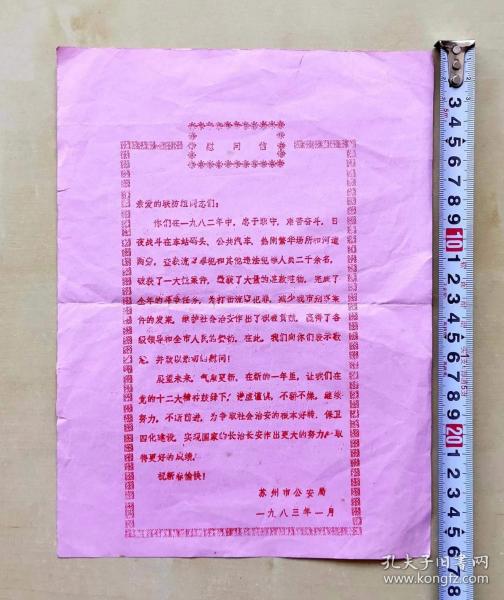 慰问信
亲爱的联防组同志们:
你们在一九八二年中,忠于职守,艰苦奋斗,日
夜战斗在车站码头、公共汽车、热闹繁华场所和河道
犯和其他违法犯罪人员二千余名,
破获了一大批案件,缴获了大量的赃款赃物,完成了
全年的任务,为打击犯罪,减少我市刑事案
件的发案,维护社会治安作出了积极贡献,赢得了各
级领导和全市人民的赞扬,在此,我们向你们表示敬
意,并致以亲切的慰问!
展望未来,气象更新,在新的一年里,让我们在
党的十二大精神鼓舞下,谦虚谨慎,不骄不燥,继续
努力,不断前进,为争取社会治安的根本好转,保卫
四化建设,实现国家的长治久安作出更大的努力,取
得更好的成绩!
祝新春愉快!
苏州市公安局
一九八三年一月
3 4 5 6 7 8 9 10 1 2 3 4 5 6 7 8 9 20 1 2 3 4 5
孔夫子旧书网
www.kongfz.com